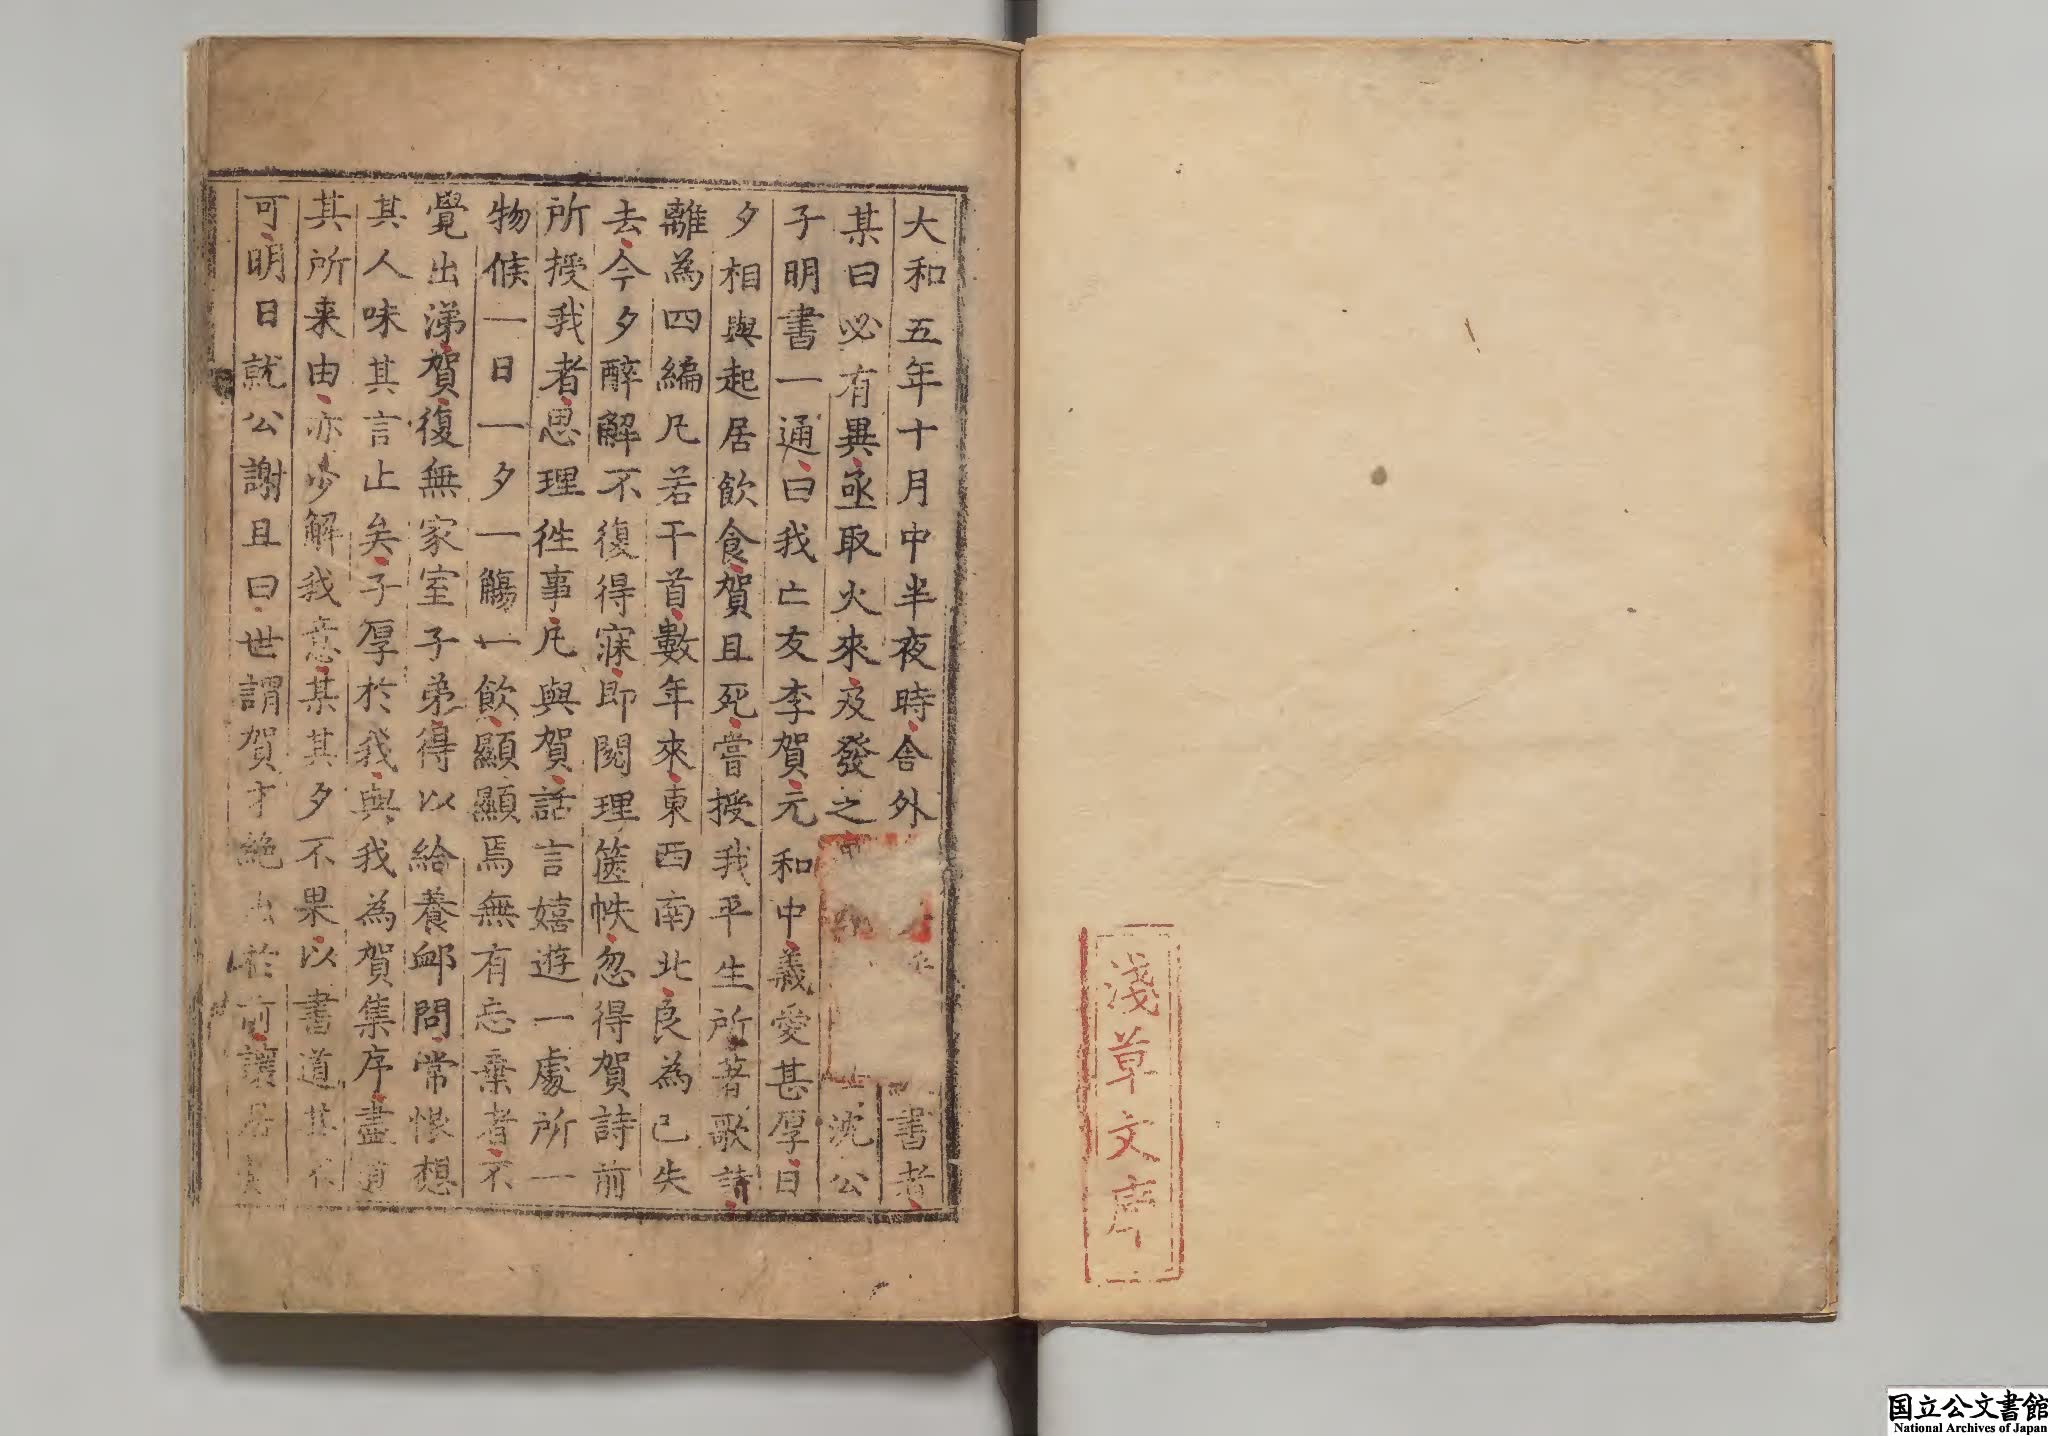 淺草文庫
大和五年十月中半夜時舎外書者
某曰必有異亟取火來及發之沈公
子明書一通曰我亡友李賀元和中義愛甚厚日
夕相與起居飲食賀且死嘗授我平生所著歌詩
離為四編凡若干首數年來東西南北良為已失
去今夕醉解不復得寐即閱理篋帙忽得賀詩前
所授我者思理徃事凡與賀話言嬉遊一處所一
物候一日一夕一觴一飲顯顯焉無有忘棄者不
覺出涕賀復無家室子弟得以給養衈問常恨想
其人味其言止矣子厚於我與我為賀集序盡道
其所来由亦少解我意某其夕不果以書道其不
可明日就公謝且曰世謂賀才絶出於前讓居
国立公文書館
National Archives of Japan